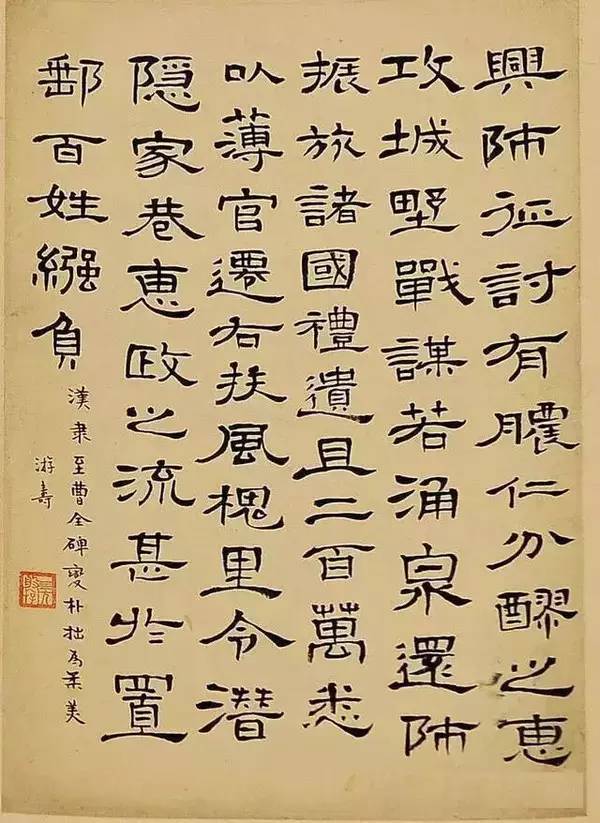 興師征討有膿仁分醪之惠
攻城墅戰謀若涌泉還師
振旅諸國禮遺且二百萬悉
以薄官遷右扶風槐里令潛
隱家巷惠政之流甚於置
郵百姓繦負
漢隶至曹全碑變朴拙為柔美
游壽